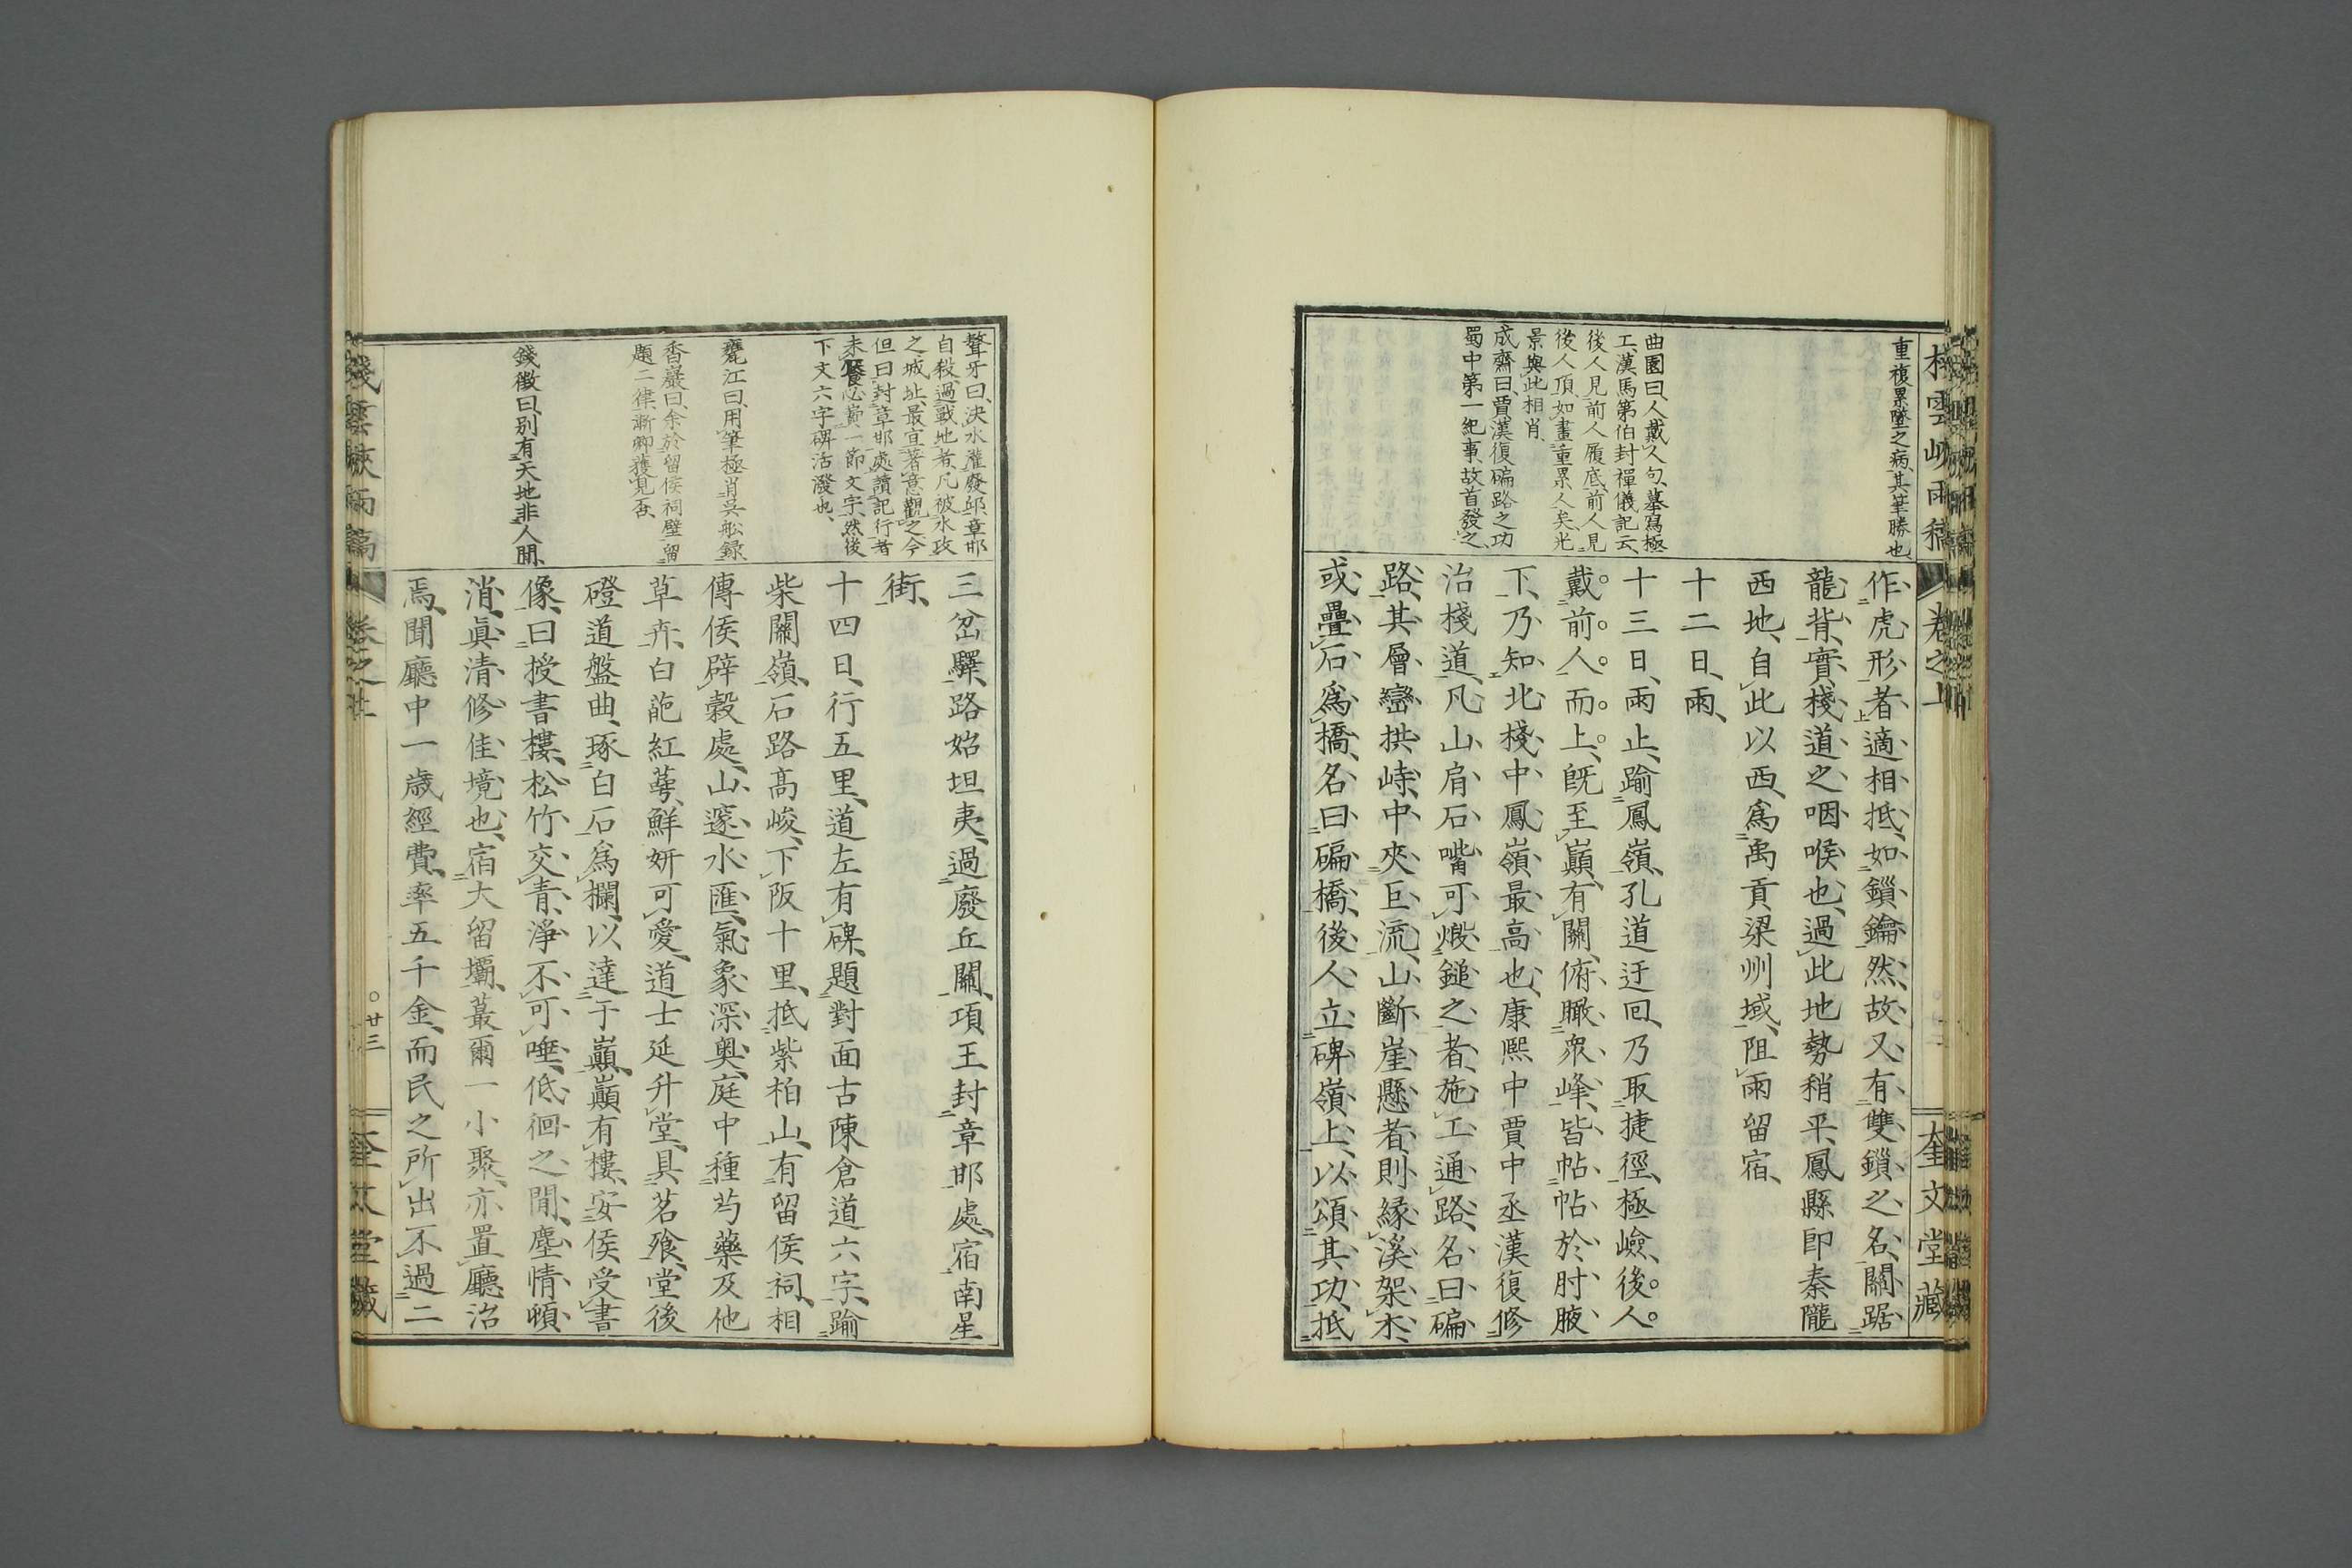 棧雲峽雨稿
卷之上
奎文堂藏
重複累墜之病其筆勝也
曲園曰、人戴人句、摹寫極
工、漢馬第伯封禪儀記云、
後人見前人履底、前人見
後人頂、如畫重累人矣、光
景與此相肖、
成齋曰、賈漢復碥路之功
蜀中第一紀事、故首發之、
作虎形者適相抵、如鎖鑰然、故又有雙鎖之名、關踞
龍背、實棧道之咽喉也、過此地勢稍平、鳳縣即秦隴
西地、自此以西、爲禹貢梁州域、阻雨留宿、
十二日、雨、
十三日、雨止、踰鳳嶺、孔道迂回、乃取捷徑、極嶮、後人
戴前人而上、既至巔、有關、俯瞰衆峰、皆帖帖於肘腋
下、乃知北棧中鳳嶺最高也、康熙中賈中丞漢復修
治棧道、凡山肩石嘴可煅鎚之者、施工通路、名曰碥
路、其層巒拱峙、中夾巨流、山斷崖懸者、則緣溪架木、
或疊石爲橋、名曰碥橋、後人立碑嶺上、以頌其功、抵
聱牙曰、決水灌廢邱、章邯
自殺、過戰地者、凡被水攻
之城址、最宜著意觀之、今
但曰封章邯處、讀記行者
未必費一節文字、然後
下文六字碑活潑也、
甕江曰、用筆極肖吳船錄、
香巖曰、余於留侯祠壁留
題二律、漸卿獲見否、
錢徵曰、別有天地非人間、
三岔驛、路始坦夷、過廢丘關、項王封章邯處、宿南星
街、
十四日、行五里、道左有碑、題對面古陳倉道六字、踰
柴關嶺、石路高峻、下阪十里、抵紫柏山、有留侯祠、相
傳侯辟穀處、山邃水匯、氣象深奧、庭中種芍藥及他
草卉、白葩紅萼、鮮妍可愛、道士延升堂、具茗飧、堂後
磴道盤曲、琢白石爲欄、以達于巔、巔有樓、安侯受書
像、曰授書樓、松竹交青、淨不可唾、低徊之間、塵情頓
消、眞清修佳境也、宿大留壩、蕞爾一小聚、亦置廳治
焉、聞廳中一歲經費、率五千金、而民之所出不過二
棧雲峽雨稿
卷之上
廿三
奎文堂藏